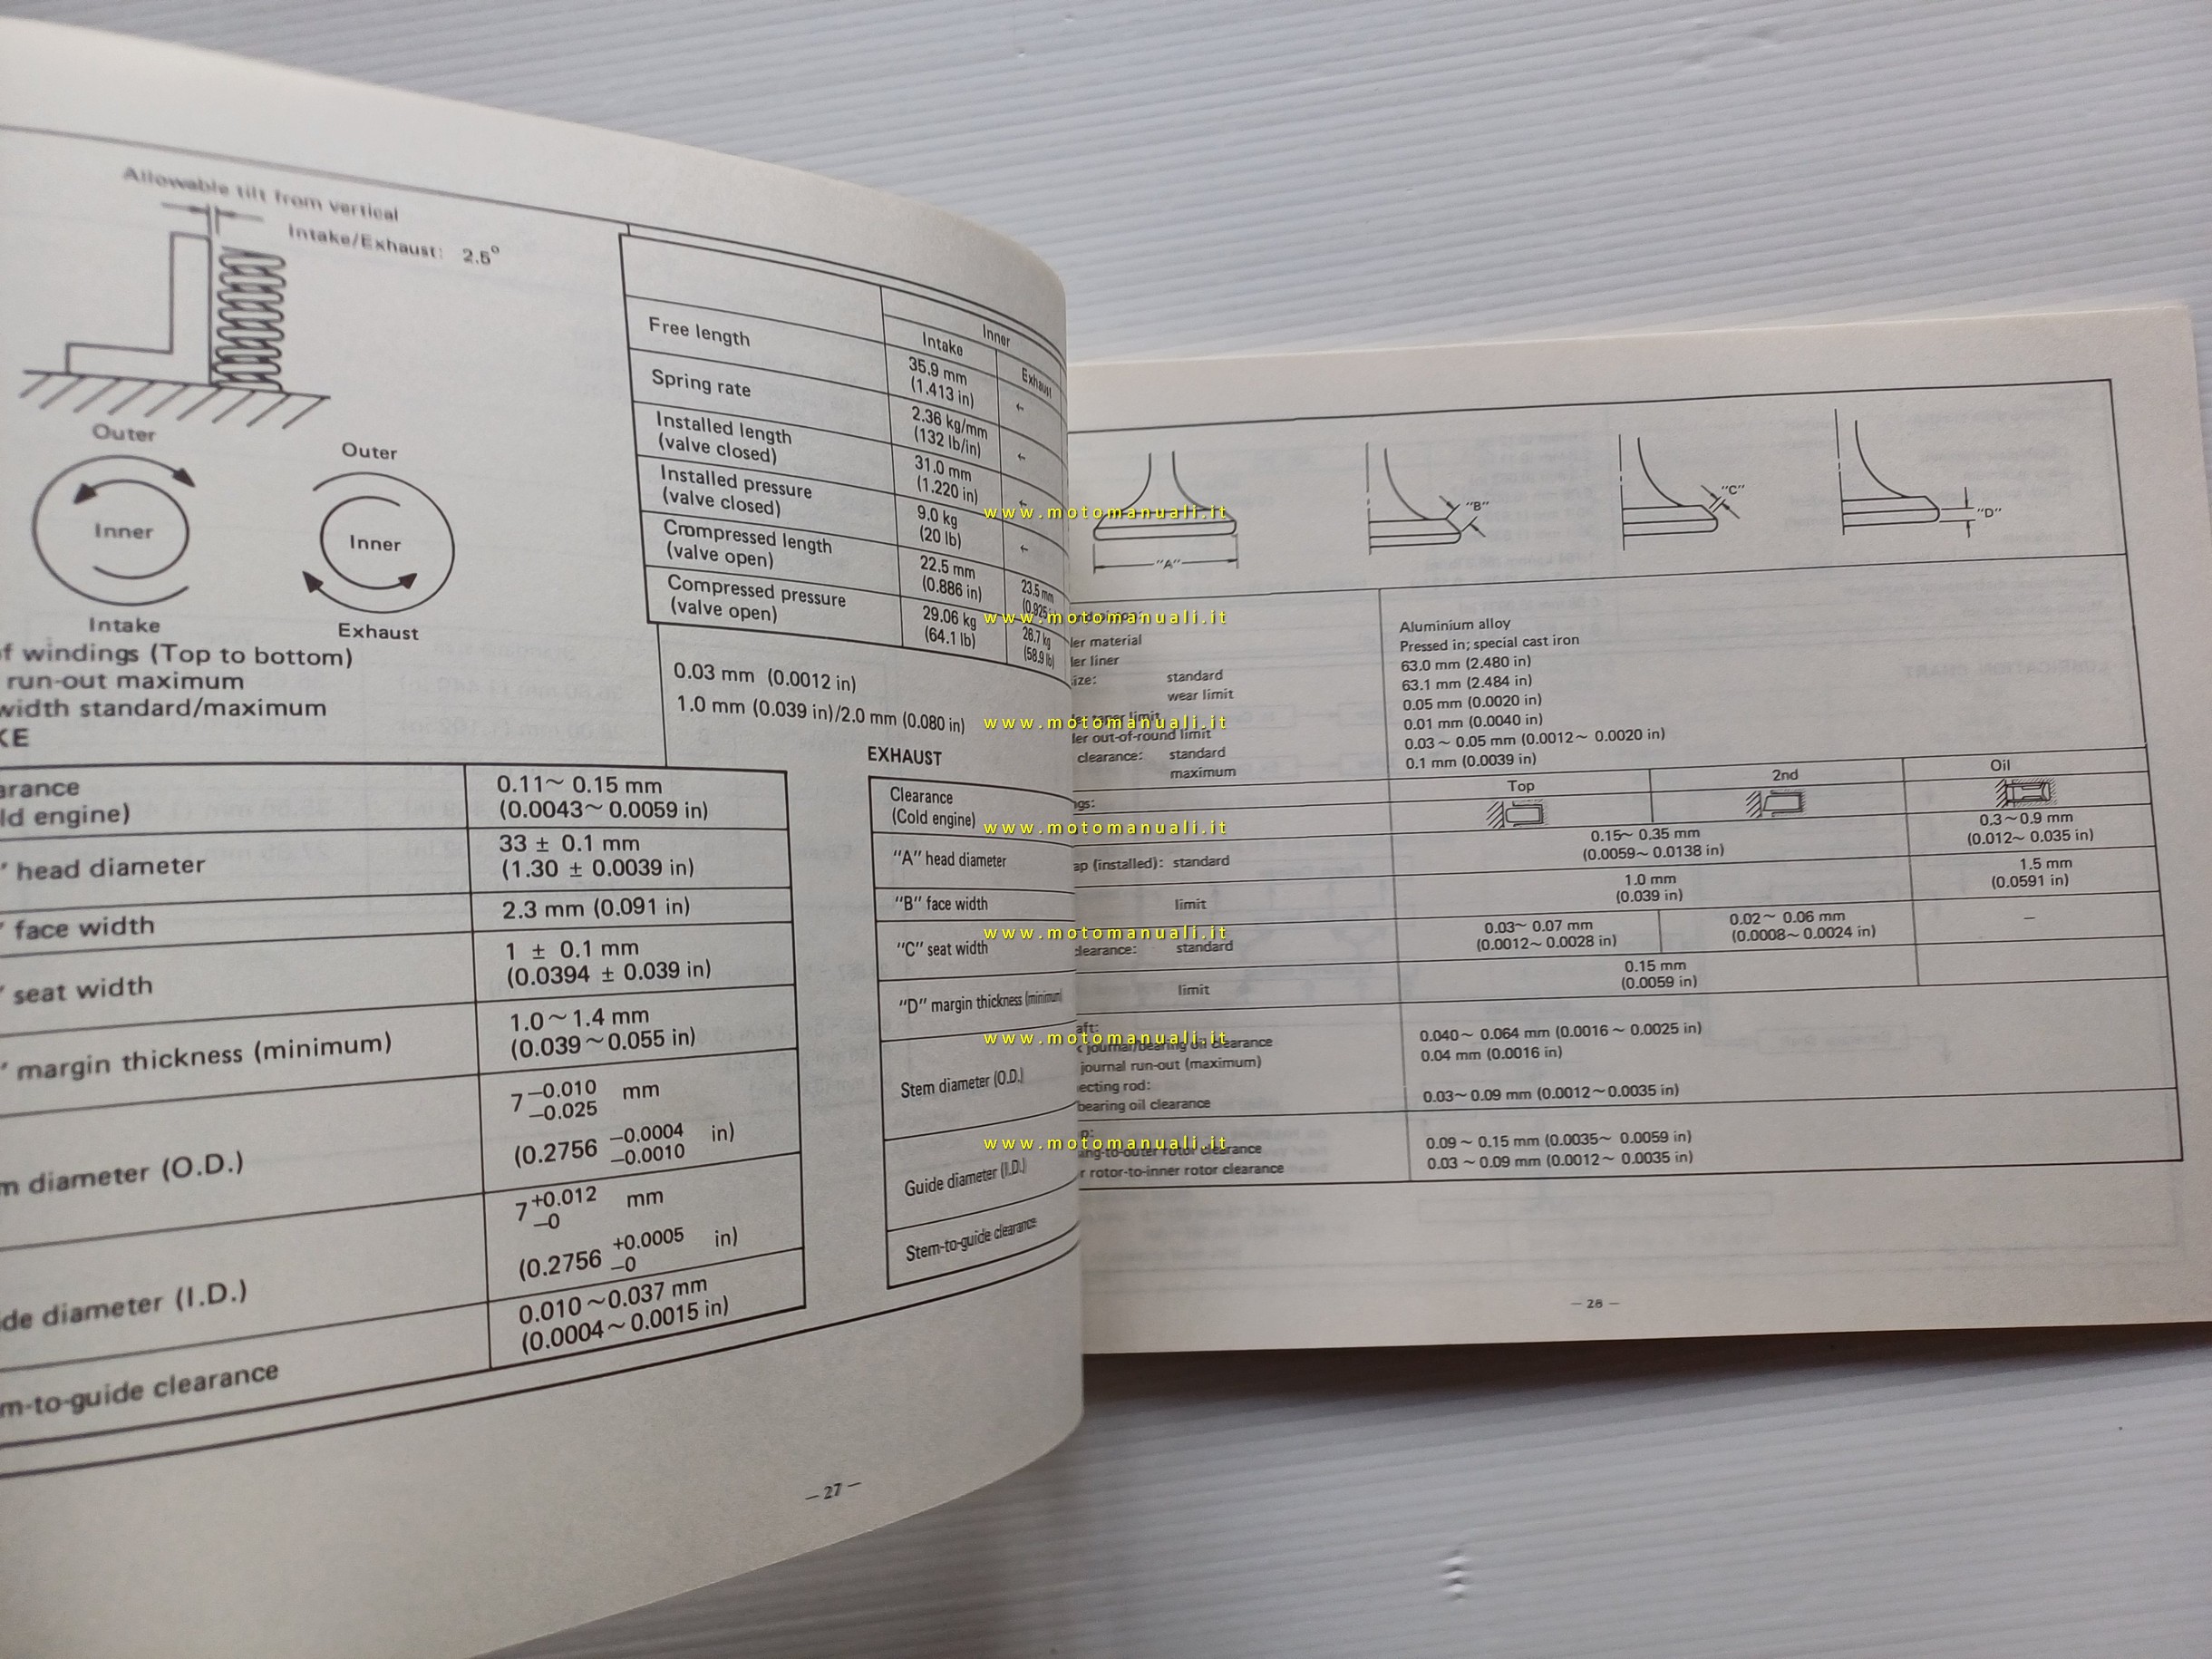 Allowable tilt from vertical
Intake/Exhaust: 2.5°
Outer
Inner
Intake
Outer
Inner
Exhaust
f windings (Top to bottom)
run-out maximum
0.03 mm (0.0012 in)
width standard/maximum
1.0 mm (0.039 in)/2.0 mm (0.080 in)
Inner
Intake Exhaust
Free length 35.9 mm ←
(1.413 in)
Spring rate 2.36 kg/mm ←
(132 lb/in)
Installed length 31.0 mm ←
(valve closed) (1.220 in)
Installed pressure 9.0 kg ←
(valve closed) (20 lb)
Crompressed length 22.5 mm 23.5 mm
(valve open) (0.886 in)
Compressed pressure 29.06 kg 26.7 kg
(valve open) (64.1 lb) (58.9 lb)
KE
arance 0.11~ 0.15 mm
ld engine) (0.0043~ 0.0059 in)
" head diameter 33 ± 0.1 mm
(1.30 ± 0.0039 in)
" face width 2.3 mm (0.091 in)
" seat width 1 ± 0.1 mm
(0.0394 ± 0.039 in)
" margin thickness (minimum) 1.0~1.4 mm
(0.039~0.055 in)
m diameter (O.D.) 7 −0.010 mm
−0.025
(0.2756 −0.0004 in)
−0.0010
de diameter (I.D.) 7 +0.012 mm
−0
(0.2756 +0.0005 in)
−0
m-to-guide clearance 0.010~0.037 mm
(0.0004~0.0015 in)
EXHAUST
Clearance
(Cold engine)
"A" head diameter
"B" face width
"C" seat width
"D" margin thickness (minimum)
Stem diameter (O.D.)
Guide diameter (I.D.)
Stem-to-guide clearance
— 27 —
"A"
"B"
"C"
"D"
ler material Aluminium alloy
ler liner Pressed in; special cast iron
ize: standard 63.0 mm (2.480 in)
wear limit 63.1 mm (2.484 in)
0.05 mm (0.0020 in)
ler out-of-round limit 0.01 mm (0.0040 in)
clearance: standard 0.03 ~ 0.05 mm (0.0012~ 0.0020 in)
maximum 0.1 mm (0.0039 in)
ngs: Top 2nd Oil
ap (installed): standard 0.15~ 0.35 mm 0.3~0.9 mm
(0.0059~ 0.0138 in) (0.012~ 0.035 in)
limit 1.0 mm 1.5 mm
(0.039 in) (0.0591 in)
clearance: standard 0.03~ 0.07 mm 0.02~ 0.06 mm —
(0.0012~ 0.0028 in) (0.0008~ 0.0024 in)
limit 0.15 mm
(0.0059 in)
aft:
journal/bearing oil clearance 0.040~ 0.064 mm (0.0016 ~ 0.0025 in)
journal run-out (maximum) 0.04 mm (0.0016 in)
ecting rod:
bearing oil clearance 0.03~ 0.09 mm (0.0012~0.0035 in)
p:
ing-to-outer rotor clearance 0.09 ~ 0.15 mm (0.0035~ 0.0059 in)
r rotor-to-inner rotor clearance 0.03 ~ 0.09 mm (0.0012~ 0.0035 in)
— 28 —
www.motomanuali.it
www.motomanuali.it
www.motomanuali.it
www.motomanuali.it
www.motomanuali.it
www.motomanuali.it
www.motomanuali.it